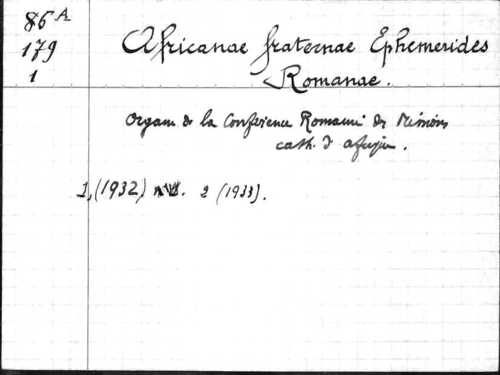 86 A
179
1
Africanae fraternae Ephemerides
Romanae.
Organ de la Conférence Romaine des Missions
cath. d'Afrique.
1, (1932) 2 (1933).